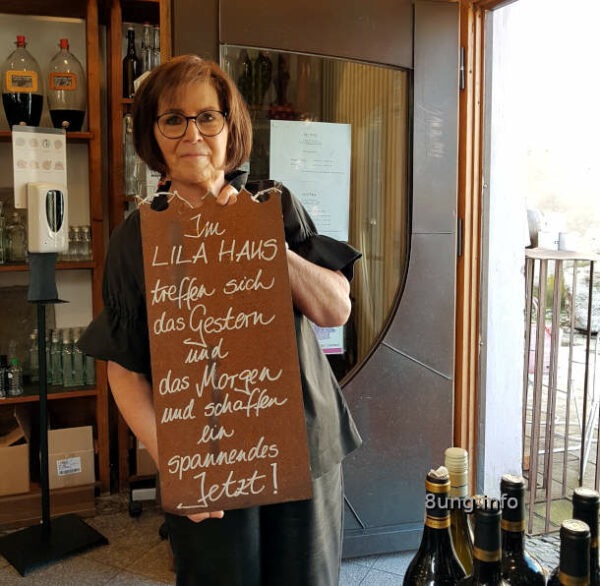 Im
LILA HAUS
treffen sich
das Gestern
und
das Morgen
und schaffen
ein
spannendes
Jetzt!
8ung.info